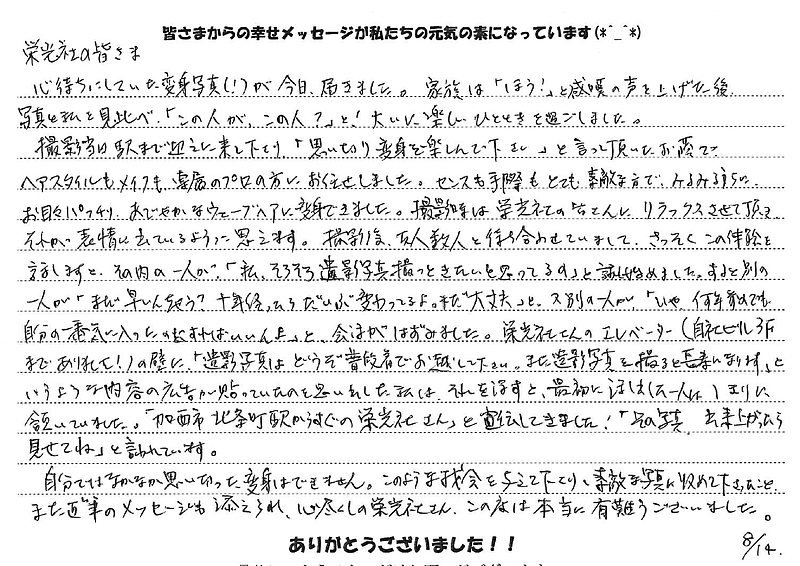 皆さまからの幸せメッセージが私たちの元気の素になっています(*^_^*)
栄光社の皆さま
心待ちにしていた変身写真(!)が今日、届きました。家族は「ほう!」と感嘆の声を上げた後、
写真と私を見比べ、「この人が、この人?」と、大いに楽しいひとときを過ごしました。
撮影当日駅まで迎えに来て下さり、「思い切り変身を楽しんで下さい」と言って頂いたお蔭で
ヘアスタイルもメイクも、専属のプロの方にお任せしました。センスも手際もとても素敵な方で、みるみるうちに
お目々パッチリ、あでやかなウェーブヘアに変身できました。撮影時は栄光社の皆さんに、リラックスさせて頂き、
それが表情に出ているように思えます。撮影後、友人数人と待ち合わせていまして、さっそくこの体験を
話しますと、その内の一人が、「私、そろそろ遺影写真撮っときたいと思ってるの」と話し始めました。すると別の
一人が「まだ早いんちゃう?十年経ったらだいぶ変わってるよ。まだ大丈夫」と、又別の一人が、「いや、何年前でも
自分の一番気に入ったの にすればいいんよ」と、会話がはずみました。栄光社さんのエレベーター(自社ビル3F
までありまして!)の壁に、「遺影写真はどうぞ普段着でお越し下さい。また遺影写真を撮ると長寿になります」と
いうような内容の広告が貼っていたのを思い出した私は、それを話すと、最初に話した一人は
領いていました。「加西市北条町駅からすぐの栄光社さん」と宣伝してきました!「その写真、出来上がったら
見せてね」と言われています。
自分ではなかなか思い切った変身はできません。このような機会を与えて下さり、素敵な写真に収めて下さったこと、
また直筆のメッセージも添えられ、心尽くしの栄光社さん、この度は本当に有難うございました。
8/14.
ありがとうございました!!